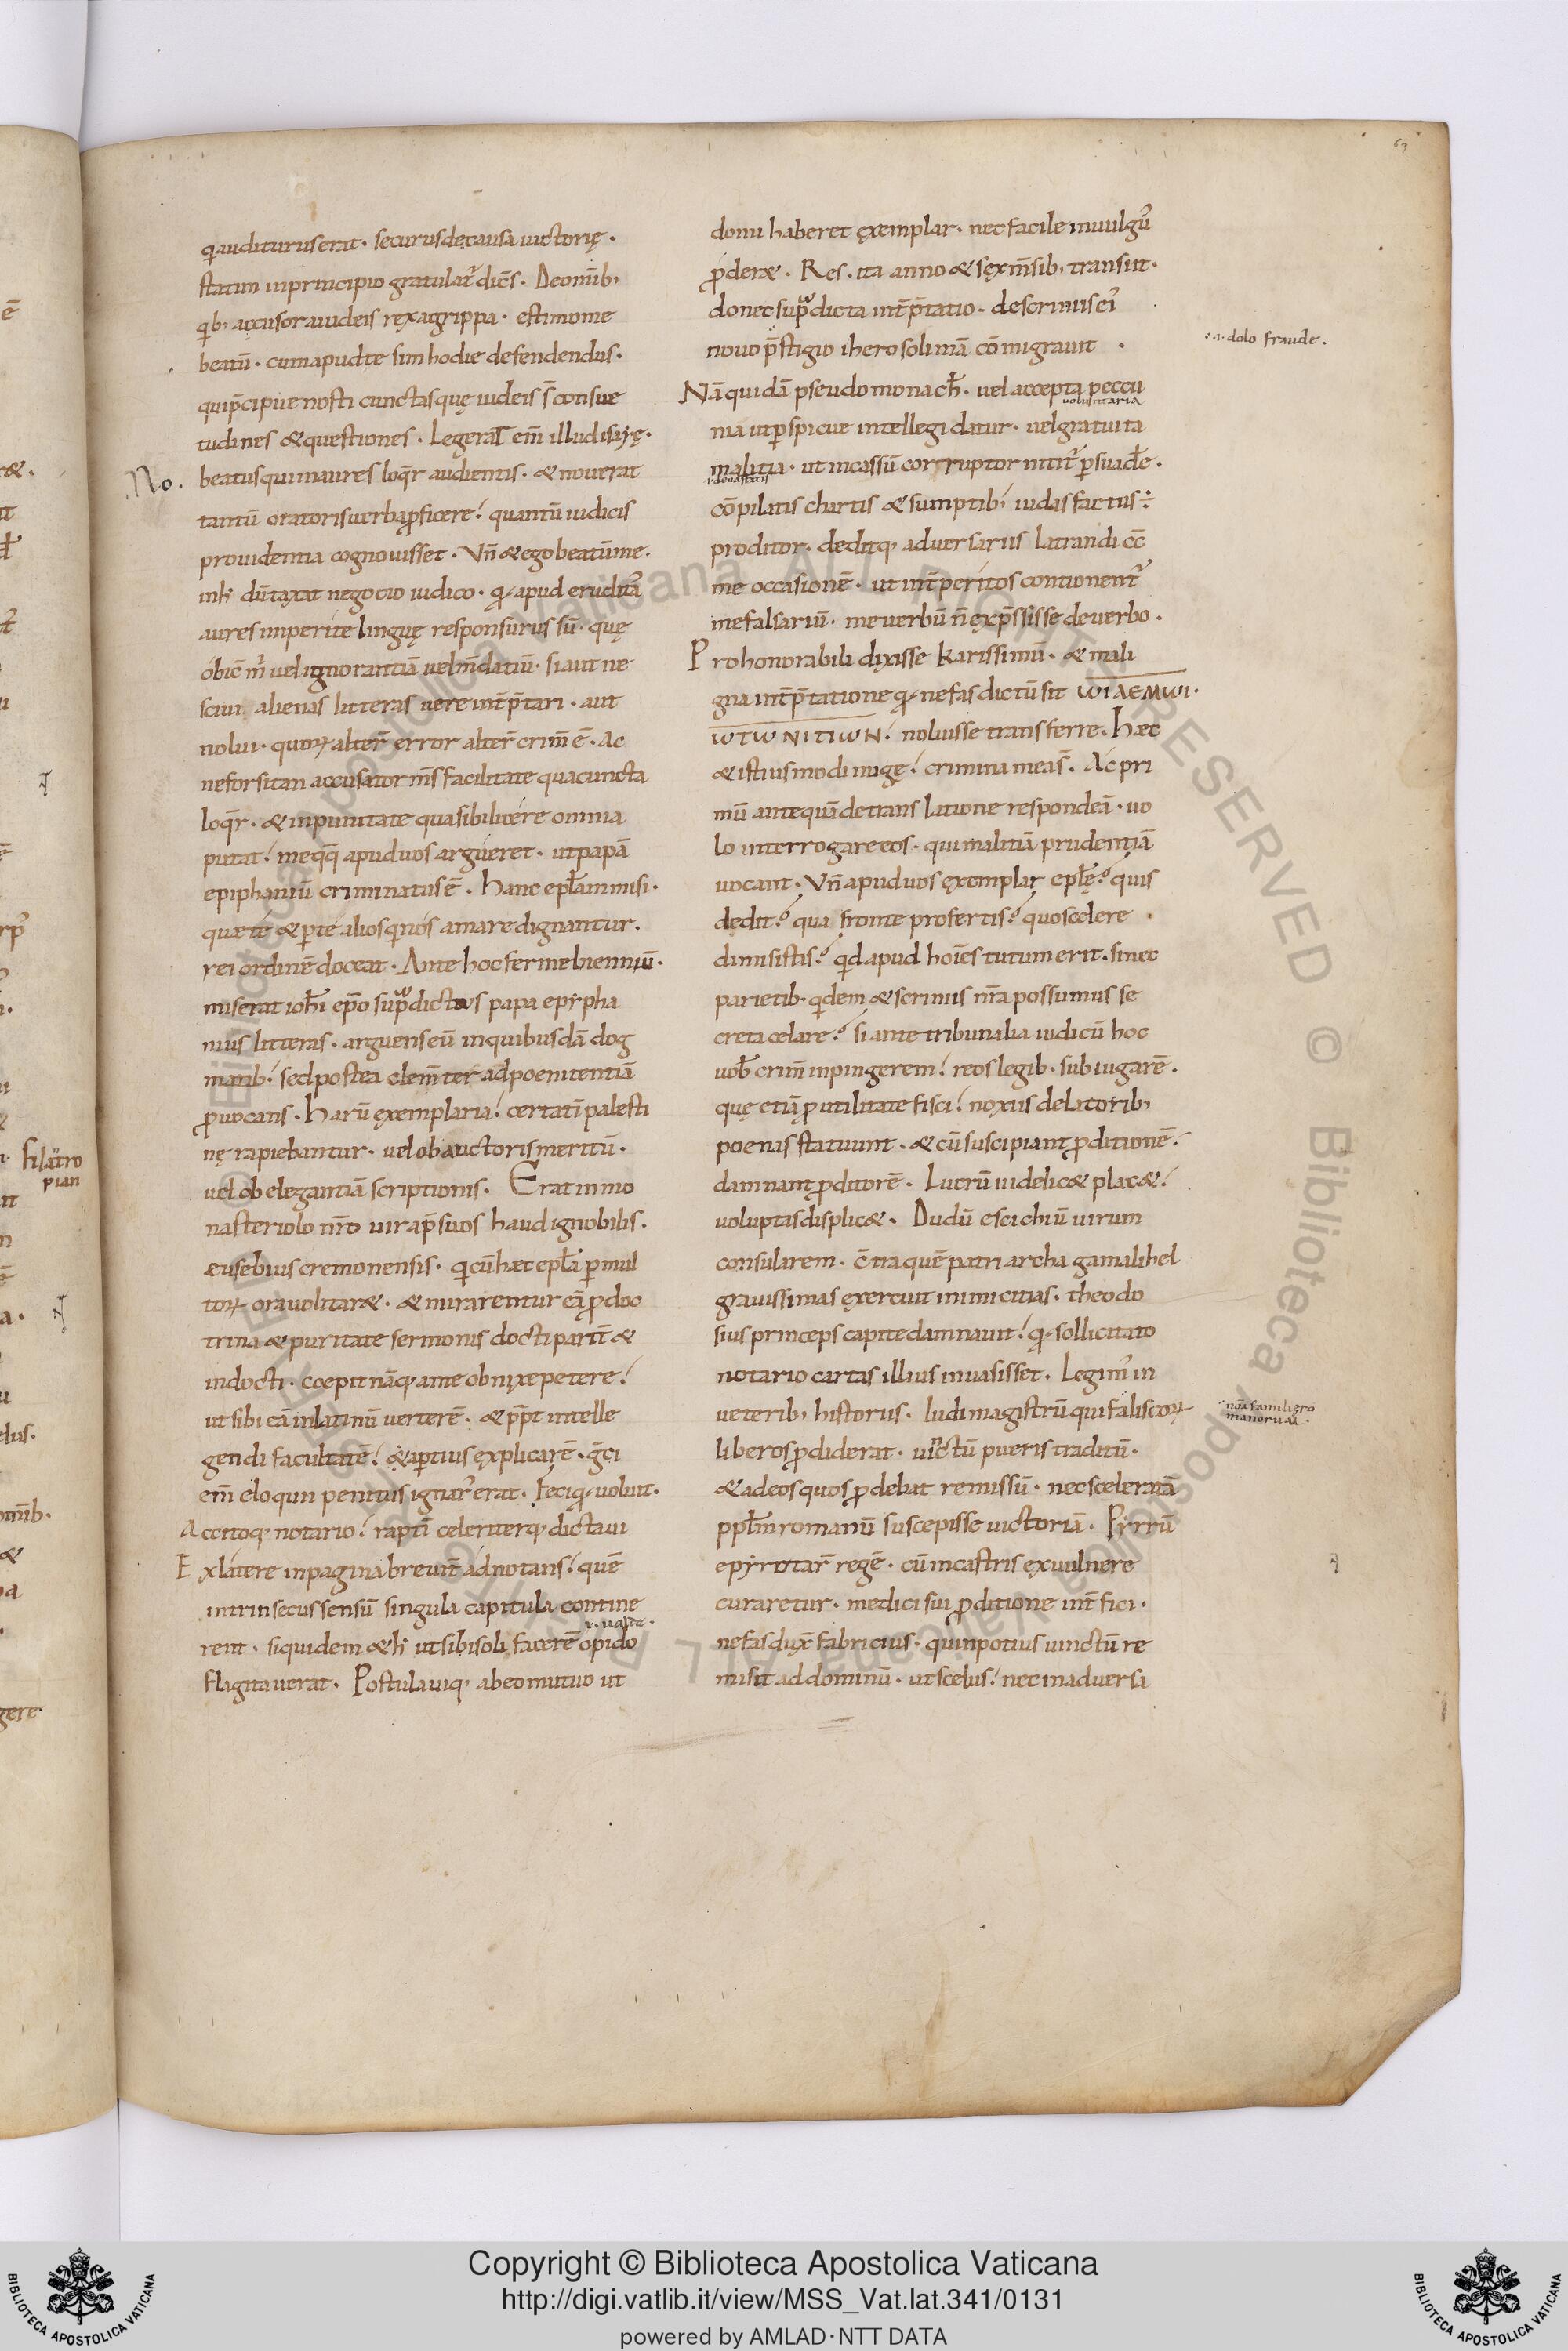 63
qi audituruserat· securusdecausa uictorię·
statim inprincipio gratulat᷑ dicēs· Deomīb;
qib; accusorauideis rexagrippa· estimome
beatū· cumapudte sim hodie defendendus·
quip̄cipue nosti cunctasquę iudeis s̄t consue
tudines &questiones· Legerat em̄ illud isaýę·
No· beatusquiinaures loqr̄ audientis· & nouerat
tantū oratorisuerbaꝓficere! quantū iudicis
prouidentia cognouisset· Vn̄ & ego beatūme·
inh dūtaxat negocio iudico· qđ apud erudita᷑
aures imperite linguę responsurus sū· quę
obic̄ m̄ uelignorantiā uelm̄datiū· siaut ne
sciui alienas litteras uere int̄p̄tari· aut
nolui· quoꝝ alter̄ error alter̄ crim̄ ē· Ac
neforsitan accusator m̄s facilitate quacuncta
loqr̄· & inpunitate quasibilicére omnia
putat! meqq̄ apuduos argueret· utpapā
epiphaniū criminatusē· Hanc epłam misi·
quæ té & ꝑ té aliosqinós amare dignantur·
rei ordinē doceat· Ante hoc fermebienniū·
miserat ioħi ep̄o sup̄dictus papa epypha
nius litteras· arguenseū inquibusdā dog
matib;! sed postea clem̄ter ad poenitentiā
ꝓuocans· Harū exemplaria! certatī palesti
nę rapiebantur· uel ob auctoris meritū·
uel ob elegantiā scriptionis· Erat inmo
nasteriolo nr̄o uir ap̄suos haud ignobilis·
eusebius cremonensis· qi cū hæc epła ꝑ mul
toꝝ ora uolitar&· & mirarentur eā ꝓdoc
trina & puritate sermonis docti parit̄ &
indocti· coepit nāq; a me obnixe petere!
ut sibi eā inlatinū uerterē· & ꝓp̄t intelle
gendi facultatē! & aꝑtius explicarē· gr̄ci
em̄ eloquii penitus ignar᷑ erat· Feci qđ uoluit·
Accitoq; notario! raptī celeriterq; dictaui
Exlátere inpagina breuit̄ adnotans! quē
intrinsecus sensū singula capitula contine
i· ualde·
rent· siquidem & h ut sibi soli facerē opido
flagitauerat· Postulauiq; ab eo mutuo ut
domi haberet exemplar· nec facile inuulgu᷑
ꝓder&· Res· ita anno & sex m̄sib; transiit·
donec sup̄dicta int̄p̄tatio· de scriniis ei᷑
nouo p̄stigio iherosolimā cōmigrauit ·
∴ ·i· dolo· fraude·
Nā quidā pseudomonach̄· uel accepta peccu
uoluntaria
nia ut ꝑspicue intellegi datur· uel gratuita
malitia· ut incassū corruptor nitit᷑ ꝑsuade·
i· deuastatis
cōpilatis chartis & sumptib;! iudas factus÷
proditor· deditq; aduersariis latrandi cc̄
me occasionē· ut int̄ ꝑitos contionent᷑
me falsariū· me uerbū n̄ exp̄ssisse deuerbo·
Pro honorabili dixisse karissimū· & mali
gna int̄p̄tatione qđ nefas dictū sit ωιΔΕΜωι·
ωτω ΝΙΤΙωΝ! noluisse transferre· Hæc
& istiusmodi nugę! crimina mea s̄· Ac pri
mū antequā detranslatione respondeā· uo
lo interrogare eos· qui malitiā prudentiā
uocant· Vn̄ apud uos exemplar epłę? quis
dedit? qua fronte profertis? quo scelere ·
dimisistis? qd apud hoīes tutum erit· si nec
parietib· qidem & scriniis nr̄a possumus se
creta celare? si ante tribunalia iudicū hoc
uob̄ crim̄ inpingerem! reos legib· subiugarē·
quę etiā ꝓ utilitate fisci! noxiis delatorib;
poenas statuunt· & cū suscipiant ꝓditionē!
damnant ꝓditorē· Lucrū uidelic& plac&!
uoluptas displic&· Dudū escichiū uirum
consularem· c̄tra quē patriarcha gamalihel
grauissimas exercuit inimicitias· theodo
sius princeps capite damnauit! qđ sollicitato
notario cartas illius inuasisset· Legim᷑ in
ueterib; historiis· ludi magistrū qui faliscoꝝ
∵ noā famili
manorum·
liberos ꝓdiderat· uinctū pueris traditū·
& ad eos quos ꝓdebat remissū· nec sceleratā
ppłm romanū suscepisse uictoriā· Pyrrū
epyrotar̄ regē· cū incastris ex uulnere
curaretur· medici sui ꝓditione int̄fici·
nefas dux̄ fabricius· quin potius uinctū re
misit ad dominū· ut scelus! nec in aduersa
Copyright © Biblioteca Apostolica Vaticana
http://digi.vatlib.it/view/MSS_Vat.lat.341/0131
powered by AMLAD·NTT DATA
BIBLIOTECA APOSTOLICA VATICANA
BIBLIOTECA APOSTOLICA VATICANA